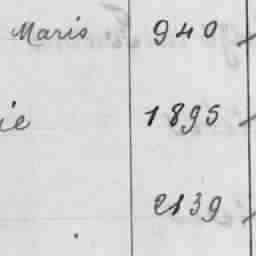 Maris 940
ie 1895
2139